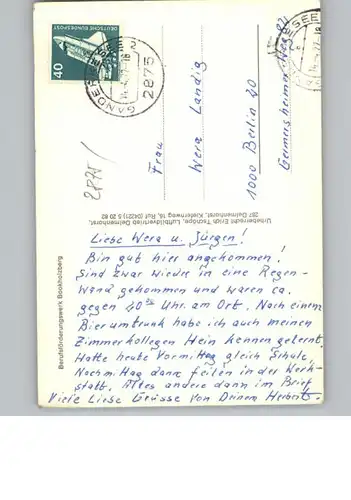 DEUTSCHE BUNDESPOST
40
2875
2875
Frau
Wera Landig
1000 Berlin 20
Germersheimer Weg
Urheberrecht Erich Tschöpe, Luftbildvertrieb Delmenhorst,
287 Delmenhorst, Kiefernweg 16, Ruf (04221) 5 20 62
Berufsförderungswerk Bookholzberg
Liebe Wera u. Jürgen!
Bin gut hier angekommen!
Sind zwar wieder in eine Regen-
wand gekommen und waren ca.
gegen Uhr am Ort. Nach einem
Bierumtrunk habe ich auch meinen
Zimmerkollegen Hein kennen gelernt.
Hatte heute Vormittag gleich Schule,
Nachmittag dann feilen in der Werk-
statt. Alles andere dann im Brief
Viele Liebe Grüsse von Deinem Herbert